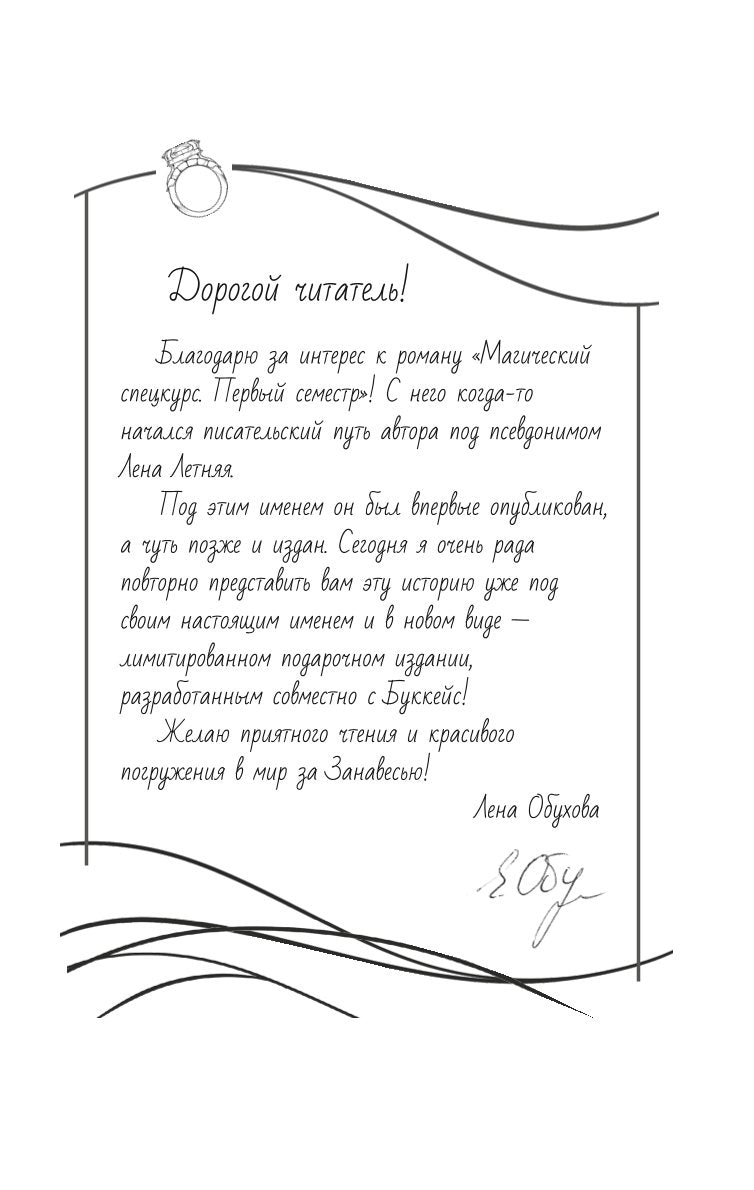 Дорогой читатель!
Благодарю за интерес к роману «Магический
спецкурс. Первый семестр»! С него когда-то
начался писательский путь автора под псевдонимом
Лена Летняя.
Под этим именем он был впервые опубликован,
а чуть позже и издан. Сегодня я очень рада
повторно представить вам эту историю уже под
своим настоящим именем и в новом виде —
лимитированном подарочном издании,
разработанным совместно с Буккейс!
Желаю приятного чтения и красивого
погружения в мир за Занавесью!
Лена Обухова